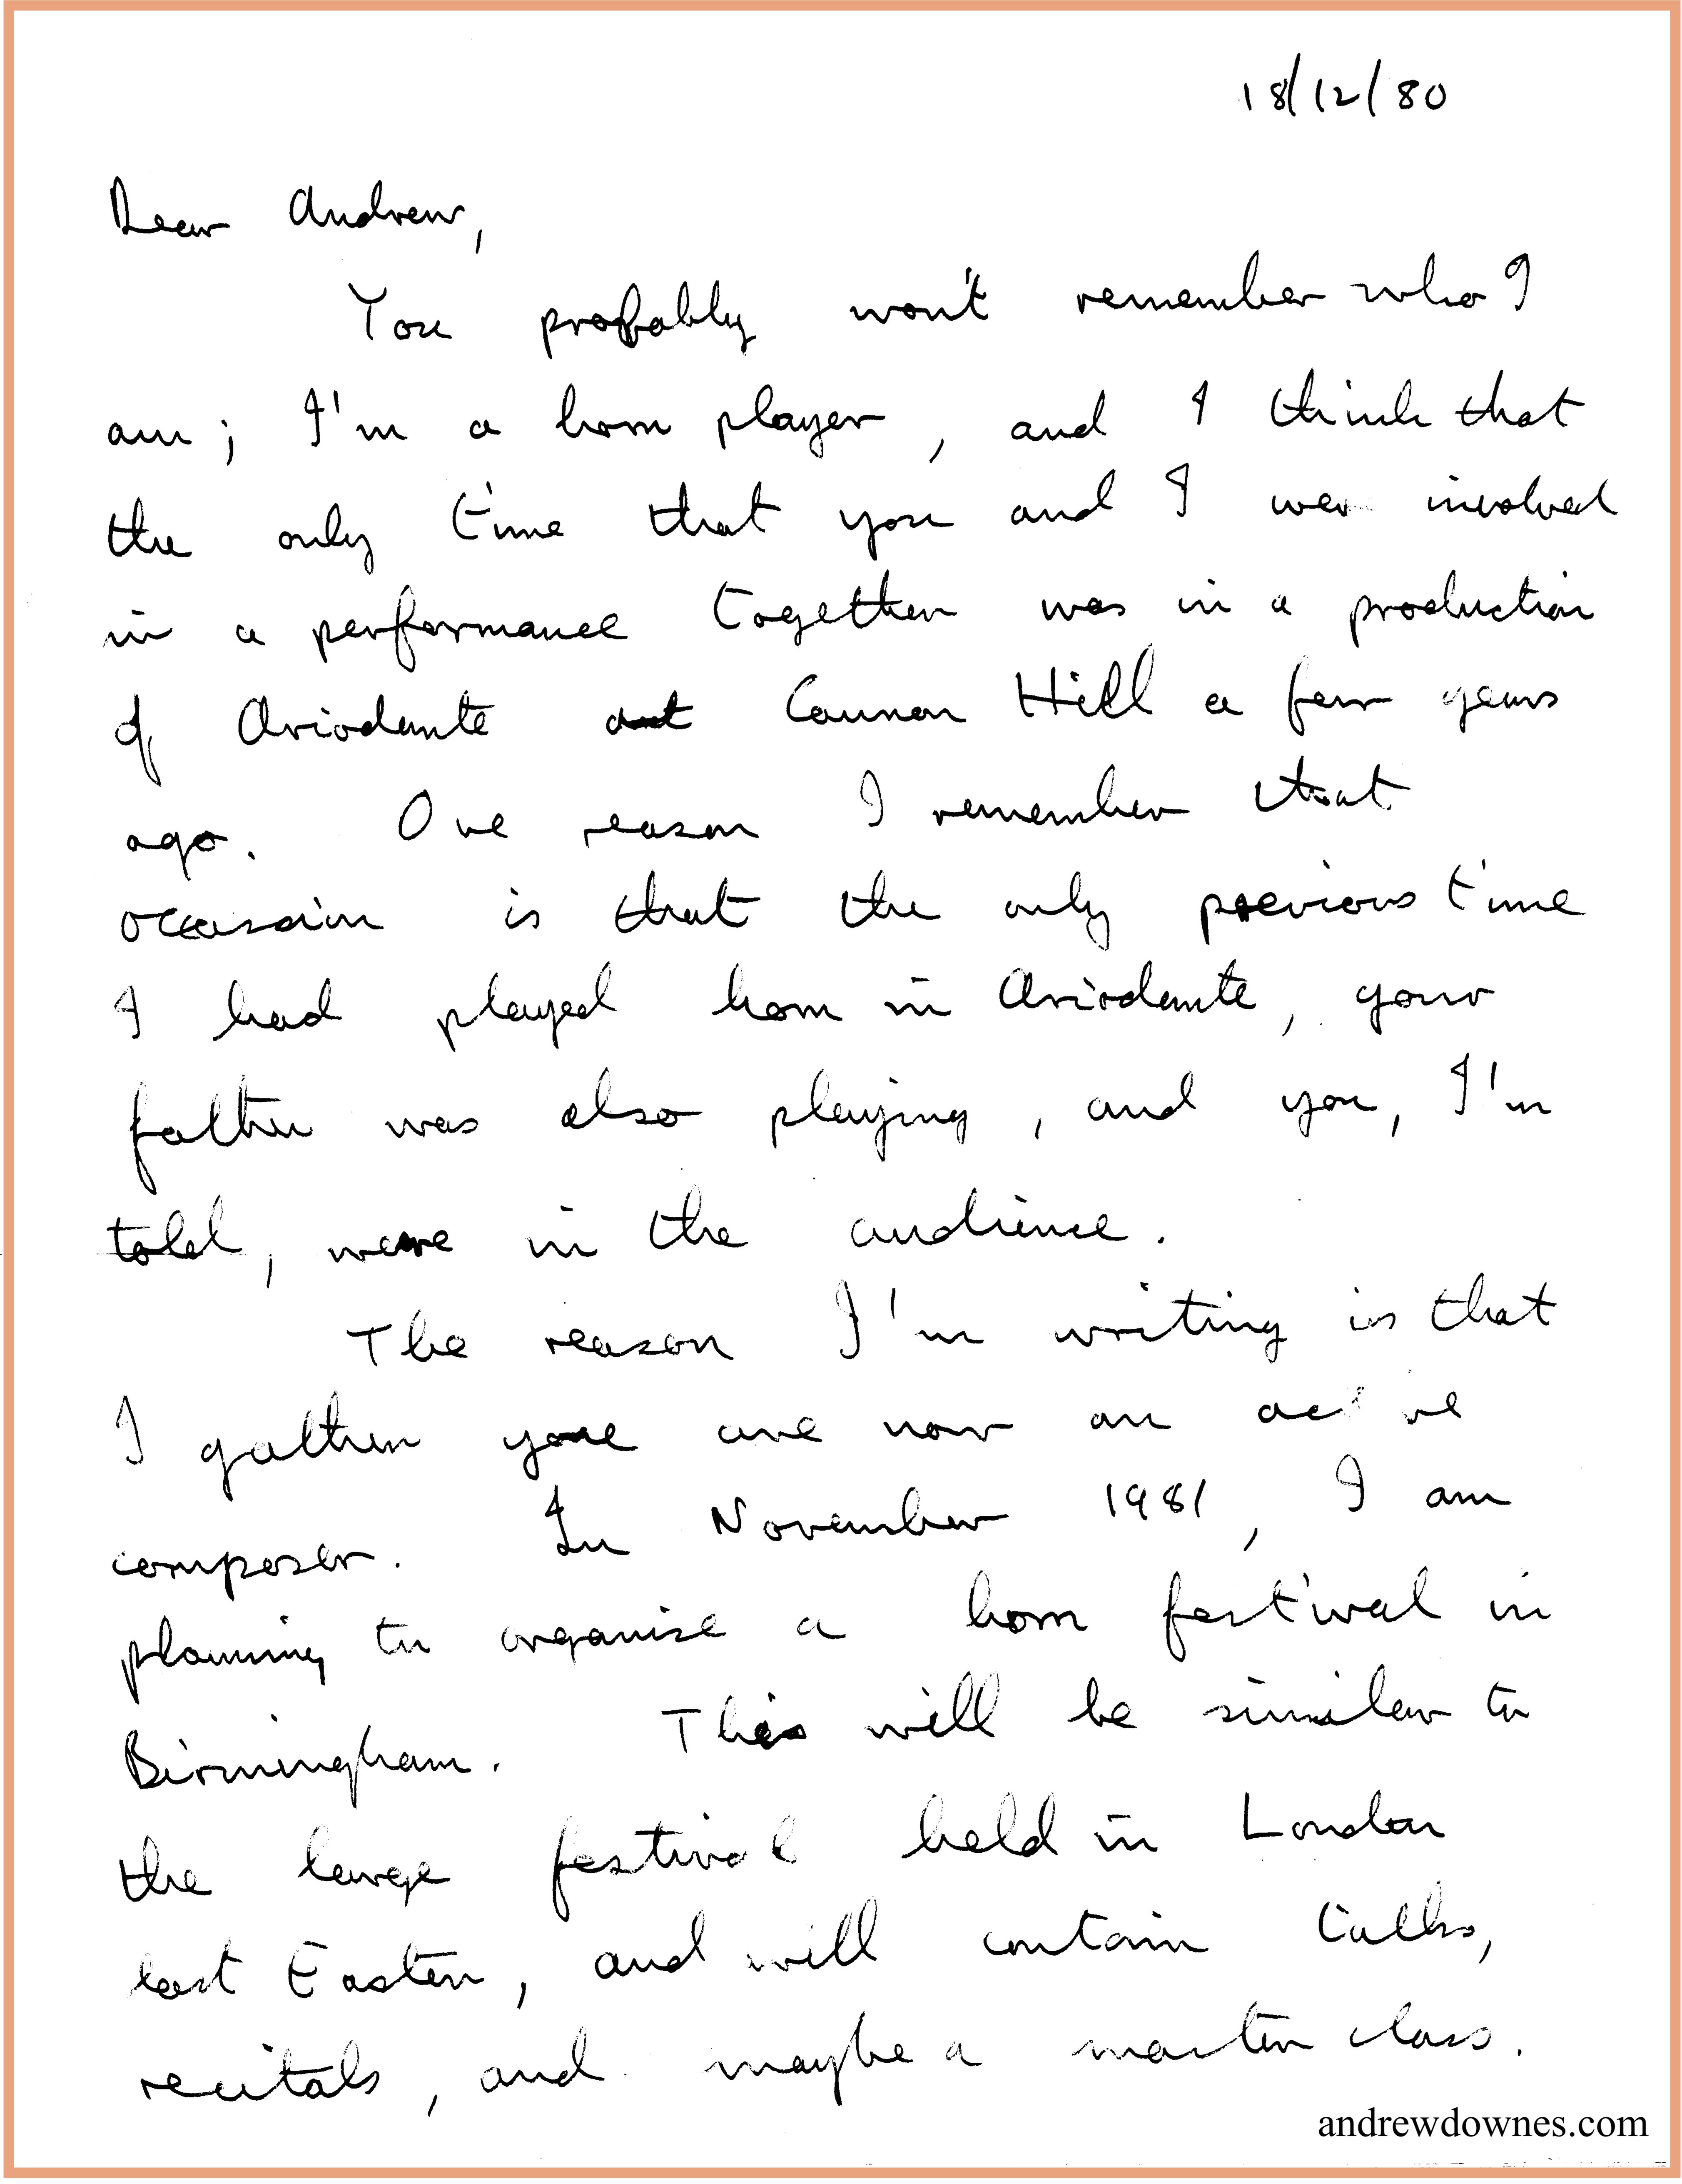 18/12/80
Dear Andrew,
You probably won't remember who I
am; I'm a horn player, and I think that
the only time that you and I were involved
in a performance together was in a production
of Ariodante at Cannon Hill a few years
ago. One reason I remember that
occasion is that the only previous time
I had played horn in Ariodante, your
father was also playing, and you, I'm
told, were in the audience.
The reason I'm writing is that
I gather you are now an active
composer. In November 1981, I am
planning to organise a horn festival in
Birmingham. This will be similar to
the large festival held in London
last Easter, and will contain talks,
recitals, and maybe a master class.
andrewdownes.com